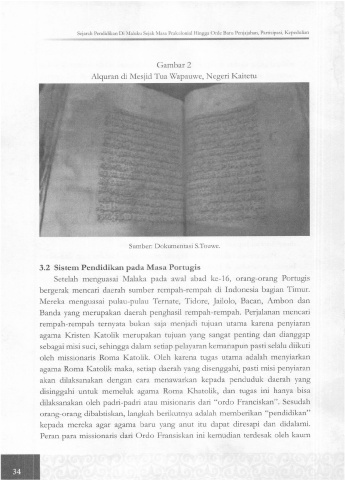 Sejarah Pendidikan Di Maluku Sejak Masa Prakolonial Hingga Orde Baru Penjajahan, Partisipasi, Kepedulian
Gambar 2
Alquran di Mesjid Tua Wapauwe, Negeri Kaitetu
Sumber: Dokumentasi S.Touwe.
3.2 Sistem Pendidikan pada Masa Portugis
Setelah menguasai Malaka pada awal abad ke-16, orang-orang Portugis
bergerak mencari daerah sumber rempah-rempah di Indonesia bagian Timur.
Mereka menguasai pulau-pulau Ternate, Tidore, Jailolo, Bacan, Ambon dan
Banda yang merupakan daerah penghasil rempah-rempah. Perjalanan mencari
rempah-rempah ternyata bukan saja menjadi tujuan utama karena penyiaran
agama Kristen Katolik merupakan tujuan yang sangat penting dan dianggap
sebagai misi suci, sehingga dalam setiap pelayaran kemanapun pasti selalu diikuti
oleh missionaris Roma Katolik. Oleh karena tugas utama adalah menyiarkan
agama Roma Katolik maka, setiap daerah yang disenggahi, pasti misi penyiaran
akan dilaksanakan dengan cara menawarkan kepada penduduk daerah yang
disinggahi untuk memeluk agama Roma Khatolik, dan tugas ini hanya bisa
dilaksanakan oleh padri-padri atau misionaris dari "ordo Franciskan". Sesudah
orang-orang dibabtiskan, langkah berikutnya adalah memberikan "pendidikan"
kepada mereka agar agama baru yang anut itu dapat diresapi dan didalami.
Peran para missionaris dari Ordo Fransiskan ini kemudian terdesak oleh kaum
34